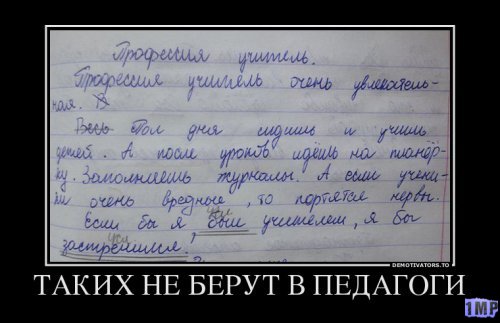 Профессия учитель.
Профессия учитель очень увлекатель-
ная. В
Весь Пол дня сидишь и учишь
детей. А после уроков идёшь на планёр-
ку. Заполняешь журналы. А если учени-
ки очень вредные, то портятся нервы.
Если бы я был учителем, я бы
застрелился.
DEMOTIVATORS.TO
ТАКИХ НЕ БЕРУТ В ПЕДАГОГИ
1MP